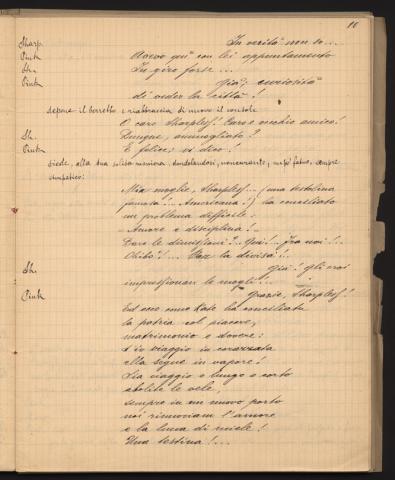 10
Sharp. In verità non so...
Pink. Avevo qui con lei appuntamento
Sh. In giro forse...
Pink. Già, curiosità
di veder la città!
depone il berretto e riabbraccia di nuovo il console
O caro Sharpless! Caro e vecchio amico!
Sh. Dunque, ammogliato?
Pink. E felice; vi dico!
siede, alla sua solita maniera, dondolandosi, noncurante, un po' fatuo, sempre
simpatico:
Mia moglie, Sharpless... (una testolina
famosa!... Americana!) ha conciliato
un problema difficile:
"Amore e disciplina!"
Dare le dimissioni?... Qui!... Fra noi!...
Ohibò!... la divisa...
Sh. Già! gli eroi
impressionan le mogli...
Pink. Grazie, Sharpless!
Ed ecco come Kate ha conciliata
la patria col piacere,
matrimonio e dovere:
s'io viaggio in corazzata
ella segue in vapore!
Sia viaggio o lungo o corto
abolite le vele,
sempre in un nuovo porto
noi rinnoviam l'amore
e la luna di miele!
Una testina!...